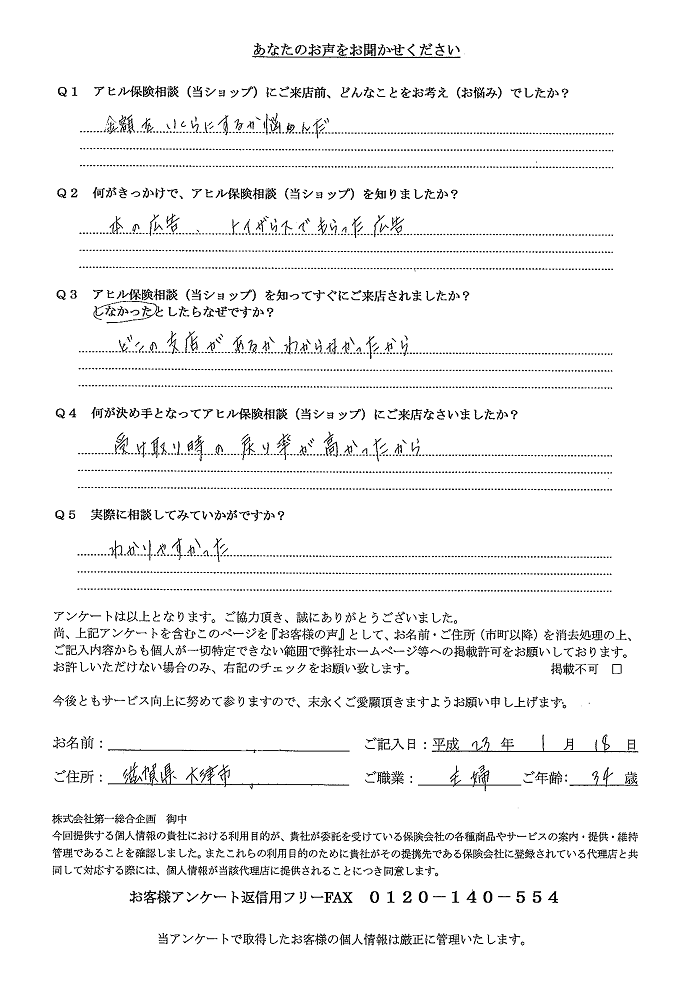 あなたのお声をお聞かせください
Q1 アヒル保険相談（当ショップ）にご来店前、どんなことをお考え（お悩み）でしたか？
金額をいくらにするか悩んだ
Q2 何がきっかけで、アヒル保険相談（当ショップ）を知りましたか？
本の広告、トイザらスでもらった広告
Q3 アヒル保険相談（当ショップ）を知ってすぐにご来店されましたか？
しなかったとしたらなぜですか？
どこの支店があるかわからなかったから
Q4 何が決め手となってアヒル保険相談（当ショップ）にご来店なさいましたか？
受け取り時の戻り率が高かったから
Q5 実際に相談してみていかがですか？
わかりやすかった
アンケートは以上となります。ご協力頂き、誠にありがとうございました。
尚、上記アンケートを含むこのページを『お客様の声』として、お名前・ご住所（市町以降）を消去処理の上、
ご記入内容からも個人が一切特定できない範囲で弊社ホームページ等への掲載許可をお願いしております。
お許しいただけない場合のみ、右記のチェックをお願い致します。 掲載不可 □
今後ともサービス向上に努めて参りますので、末永くご愛顧頂きますようお願い申し上げます。
お名前： ご記入日：平成 23 年 1 月 18 日
ご住所： 滋賀県 大津市 ご職業： 主婦 ご年齢: 34 歳
株式会社第一総合企画 御中
今回提供する個人情報の貴社における利用目的が、貴社が委託を受けている保険会社の各種商品やサービスの案内・提供・維持
管理であることを確認しました。またこれらの利用目的のために貴社がその提携先である保険会社に登録されている代理店と共
同して対応する際には、個人情報が当該代理店に提供されることにつき同意します。
お客様アンケート返信用フリーFAX 0120－140－554
当アンケートで取得したお客様の個人情報は厳正に管理いたします。